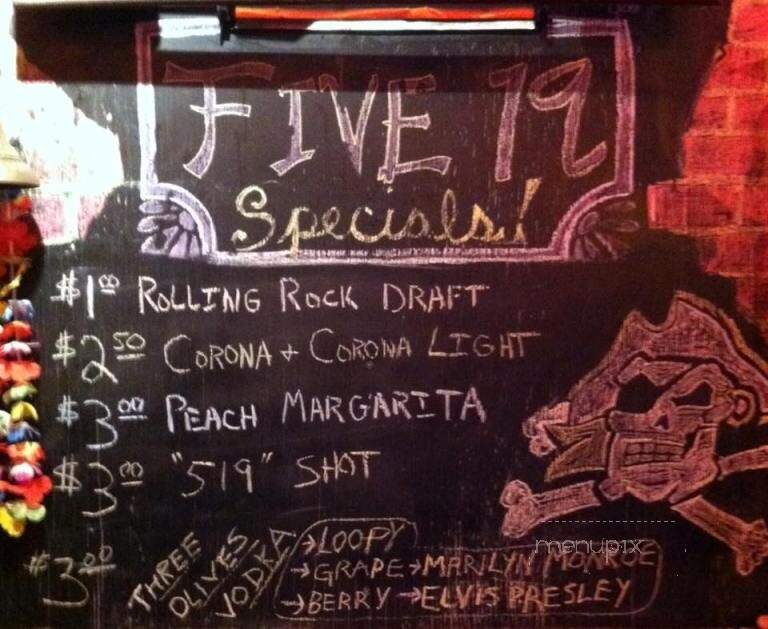 FIVE 19
Specials!
$1.00 ROLLING ROCK DRAFT
$2.50 CORONA + CORONA LIGHT
$3.00 PEACH MARGARITA
$3.00 "519" SHOT
$3.00 THREE OLIVES VODKA
→LOOPY
→GRAPE →MARILYN MONROE
→BERRY →ELVIS PRESLEY
menupix